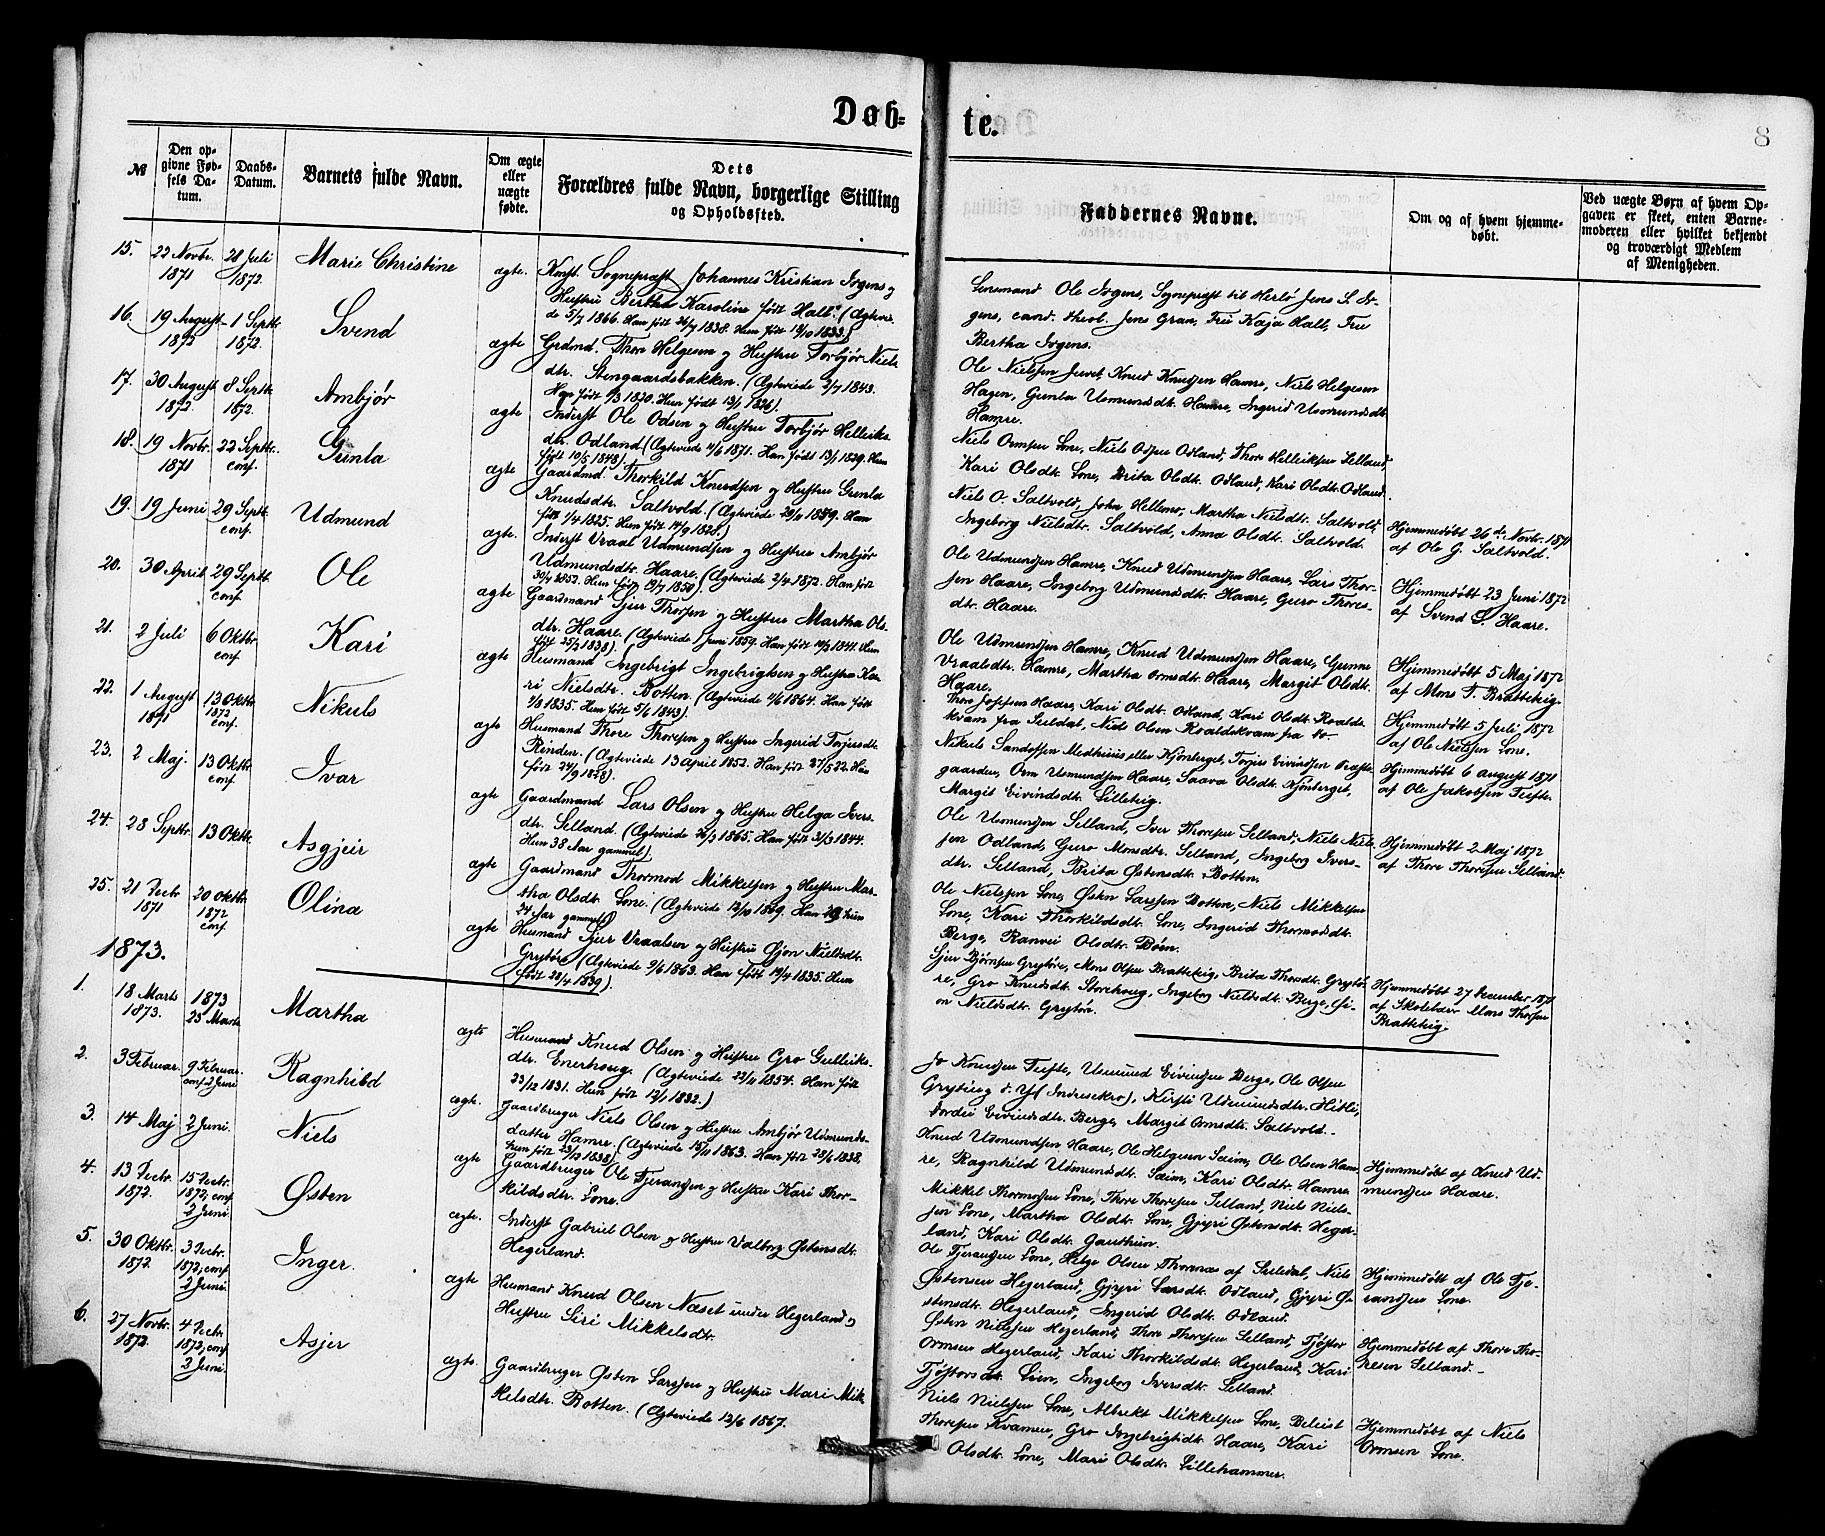 Døb-
te.
8
№
Den op-
givne Fød-
sels Da-
tum.
Daabs-
Datum.
Barnets fulde Navn.
Om ægte
eller
uægte
fødte.
Dets
Forældres fulde Navn, borgerlige Stilling
og Opholdssted.
Faddernes Navne.
Om og af hvem hjemme-
døbt.
Ved uægte Børn af hvem Op-
gaven er skeet, enten Barne-
moderen eller hvilket bekjendt
og troværdigt Medlem
af Menigheden.
15.
22 Novbr.
1871
28 Juli
1872.
Marie Christine
ægte.
Konst. Sognepræst Johannes Kristian Irgens og
Hustru Bertha Karoline født Hall. (Ægtevie-
de 5/7 1866. Han født 26/7 1838. Hun født 1833.)
Lensmand Ole Irgens, Sognepræst til Herlø Jens S. Ir-
gens, cand. theol. Jens Gran, Fru Kaja Hall, Fru
Bertha Irgens.
16.
19 August
1872
1 Septbr.
1872.
Svend
ægte
Grdmd. Thor Helgesen og Hustru Torbjør Niels
dtr. Stengaardsbakken. (Ægteviede 2/7 1843.
Han født 4/3 1820. Hun født 1826).
Ole Nielsen Juvet, Knud Knudsen Hamre, Niels Helgesen
Hagen, Gunla Usmundsdt. Hamre, Ingerid Usmundsdt.
Hamre.
17.
30 August
1872.
8 Septbr.
1872.
Ambjør
ægte
Inderst Ole Odsen og Hustru Torbjør Helleiks
dtr. Odland. (Ægteviede 4/6 1871. Han født 13/1 1829. Hun
født 10/5 1848).
Niels Ormsen Lone, Niels Odsen Odland, Thore Helleiksen Selland,
Kari Olsdt. Lone, Brita Olsdt. Odland, Kari Olsdt. Odland.
18.
19 Novbr.
1871
22 Septbr.
conf.
Gunla
ægte
Gaardmd. Thorkild Knudsen og Hustru Gunla
Knudsdtr. Saltvold. (Ægteviede 1859. Han
født 1/4 1825. Hun født 14/9 1828.)
Niels O. Saltvold, John Hellemo, Martha Nielsdt. Saltvold,
Ingeborg Nielsdtr. Saltvold, Anna Olsdt. Saltvold.
Hjemmedøbt 26de Novbr. 1871
af Ole G. Saltvold.
19.
19 Juni
29 Septbr.
conf.
Udmund
ægte.
Inderst Vraal Udmundsen og Hustru Ambjør
Udmundsdtr. Haare. (Ægteviede 2/4 1872. Han født
30/4 1852. Hun født 19/7 1850).
Ole Udmundsen Hamre, Knud Udmundsen Haare, Lars Thor-
sen Haare, Ingeborg Udmundsdt. Haare, Guro Thores-
dt. Haare.
Hjemmedøbt 23 Juni 1872
af Svend S. Haare.
20.
30 April
29 Septbr.
conf.
Ole
ægte
Gaardmand Sjur Thorsen og Hustru Martha Ols-
dtr. Haare. (Ægteviede Juni 1859. Han født 1841. Hun
født 25/2 1838).
Ole Udmundsen Hamre, Knud Udmundsen Haare, Gunne
Vraalsdt. Hamre, Martha Ormsdt. Haare, Margit Olsdt.
Haare.
Hjemmedøbt 5 Maj 1872
af Mons T. Bratteteig.
21.
2 Juli
6 Oktbr.
conf.
Kari
ægte
Husmand Ingebrigt Ingebrigtsen og Hustru Ka-
ri Nielsdtr. Botten. (Ægteviede 4/6 1864. Han født
2/8 1835. Hun født 5/6 1843).
Thor Josefsen Haare, Kari Olsdt. Odland, Kari Olsdt. Roalds-
kvam fra Suldal, Niels Olsen Roaldskvam fra do.
Hjemmedøbt 5 Juli 1872
af Ole Nielsen Lone.
22.
1 August
1871
13 Oktbr.
1872
conf.
Nikuls
ægte
Husmand Thore Thoresen og Hustru Ingerid Torjusdt.
Rinden. (Ægteviede 13 April 1852. Han født 27/5 22. Hun
født 24/9 1828).
Nikuls Sandesen Medhuus eller Kjønberget, Torjus Eivindsen Præste-
gaarden, Orm Usmundsen Haare, Saava Olsdt. Kjønberget,
Margit Eivindsdt. Lilleteig.
Hjemmedøbt 6 August 1871
af Ole Jakobsen Tufte.
23.
2 Maj.
13 Oktbr.
conf.
Ivar
ægte
Gaardmand Lars Olsen og Hustru Helga Ivers-
dtr. Selland. (Ægteviede 1865. Han født 31/3 1844.
Hun 38 Aar gammel).
Ole Usmundsen Selland, Iver Thoresen Selland, Niels Niel-
sen Odland, Guro Monsdtr. Selland, Ingeborg Ivers-
dtr. Selland, Brita Østensdt. Botten.
Hjemmedøbt 2 Maj 1872
af Thore Thoresen Selland.
24.
28 Septbr.
13 Oktbr.
Asgjeir
ægte
Gaardmand Thormod Mikkelsen og Hustru Mar-
tha Olsdt. Lone. (Ægteviede 1869. Han Hun
24 Aar gammel)
Ole Nielsen Lone, Østen Larssen Botten, Niels Mikkelsen
Lone, Kari Thorkildsdt. Lone, Ingerid Thormosdt.
Berge, Ranvei Olsdt. Bøen.
25.
21 Decbr
1871
20 Oktbr.
1872
conf.
Olina
ægte
Husmand Sjur Vraalsen og Hustru Gjøn Nielsdt.
Grytøre (Ægteviede 9/6 1863. Han født 19/4 1835. Hun
født 28/4 1839).
Sjur Bjørnsen Grytøre, Mons Olsen Bratteteig, Brita Thorsdt. Grytø-
re, Gro Knudsdt. Storehoug, Ingeborg Nielsdt. Berge, Gi-
on Nielsdt. Grytøre.
Hjemmedøbt 27 December 1871
af Skolelærer Mons Thorsen
Bratteteig.
1873.
1.
18 Marts
1873.
1873
25 Marts
Martha
ægte
Husmand Knud Olsen og Hustru Gro Gulleiks-
dtr. Enerhoug. (Ægteviede 1854. Han født
23/12 1831. Hun født 1832.)
Jo Knudsen Tufte, Usmund Eivindsen Berge, Ole Olsen
Gryting d. Y. (Indresekro), Kirsti Udmundsdtr. Hitli,
Jordei Eivindsdtr. Berge, Margit Ormsdtr. Saltvold.
2.
3 Februar.
9 Februar.
conf 2 Juni
Ragnhild
ægte.
Gaardbruger Niels Olsen og Hustru Ambjør Udmunds-
datter Hamre. (Ægteviede 1863. Han født 28/6 1838.
Hun født 23/12 1838).
Knud Udmundsen Haare, Ole Helgesen Seim, Ole Olsen Ham-
re, Ragnhild Udmundsdt. Seim, Kari Olsdt. Hamre
Hjemmedøbt af Knud Ud-
mundsen Haare.
3.
14 Maj
2 Juni.
Niels
ægte
Gaardbruger Ole Tjerandsen og Hustru Kari Thor-
kildsdtr. Lone.
Mikkel Thormosen Lone, Thore Thoresen Selland, Niels Niel-
sen Lone, Martha Olsdt. Lone, Gjyri Østensdt. Heger-
land, Kari Olsdt. Gauthun.
4.
13 Decbr.
1872.
15 Decbr.
1872, conf.
2 Juni.
Østen
ægte.
Inderst Gabriel Olsen og Hustru Valborg Østensdt.
Hegerland.
Ole Tjerandsen Lone, Helge Olsen Thornæs af Suledal, Niels
Østensen Hegerland, Gjyri Larsdt. Odland, Gjyri Ø-
stensdt. Hegerland, Ingerid Olsdt. Odland.
Hjemmedøbt af Ole Tje-
randsen Lone.
5.
30 Oktbr.
1872.
3 Decbr.
1872, conf.
2 Juni.
Inger.
ægte
Husmand Knud Olsen Næset under Hegerland og
Hustru Siri Mikkelsdt.
Østen Nielsen Hegerland, Thore Thoresen Selland, Tjøstov
Ormsen Hegerland, Kari Thorkildsdt. Hegerland, Kari
Tjøstovsdt. Lien, Ingeborg Iversdt. Selland.
Hjemmedøbt af Thore Tho-
resen Selland.
6.
27 Novbr.
1872.
4 Decbr.
1872, conf
2 Juni.
Asjer
ægte.
Gaardbruger Østen Larssen og Hustru Mari Mik-
kelsdtr. Botten. (Ægteviede 13/6 1867.
Niels Nielsen Lone, Albrekt Mikkelsen Lone, Beleist
Thoresen Kvamen, Gro Ingebrigtsdt. Haare, Kari
Olsdt. Lone, Mari Olsdt. Lillehammer.
Hjemmedøbt af Niels
Ormsen Lone.